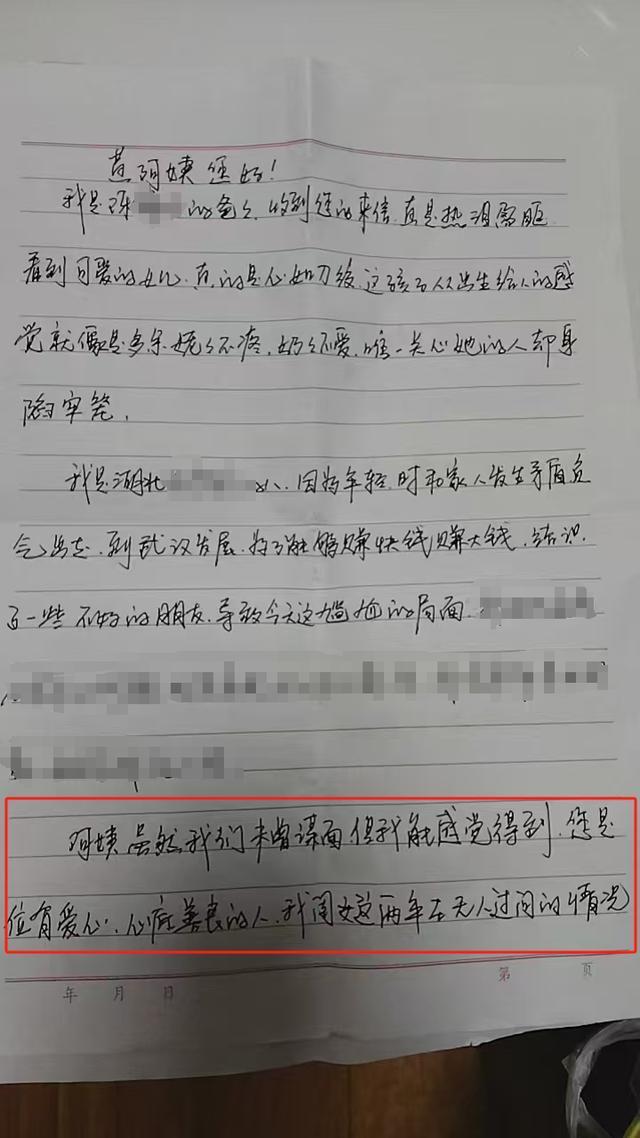 黄阿姨您好!
我是陈 的爸爸,收到您的来信,真是热泪盈眶
看到可爱的女儿,真的是心如刀绞,这孩子从出生给人的感
觉就像是多余,姥姥不疼,奶奶不爱,唯一关心她的人却身
陷牢笼,
我是湖北 人,因为年轻时和家人发生矛盾负
气出走,到武汉发展,为了能够赚快钱赚大钱,结识
了一些不好的朋友,导致今天这尴尬的局面,
阿姨虽然我们未曾谋面但我能感觉得到,您是
位有爱心,心底善良的人,我闺女这两年在无人过问的情况
年 月 日
第 页